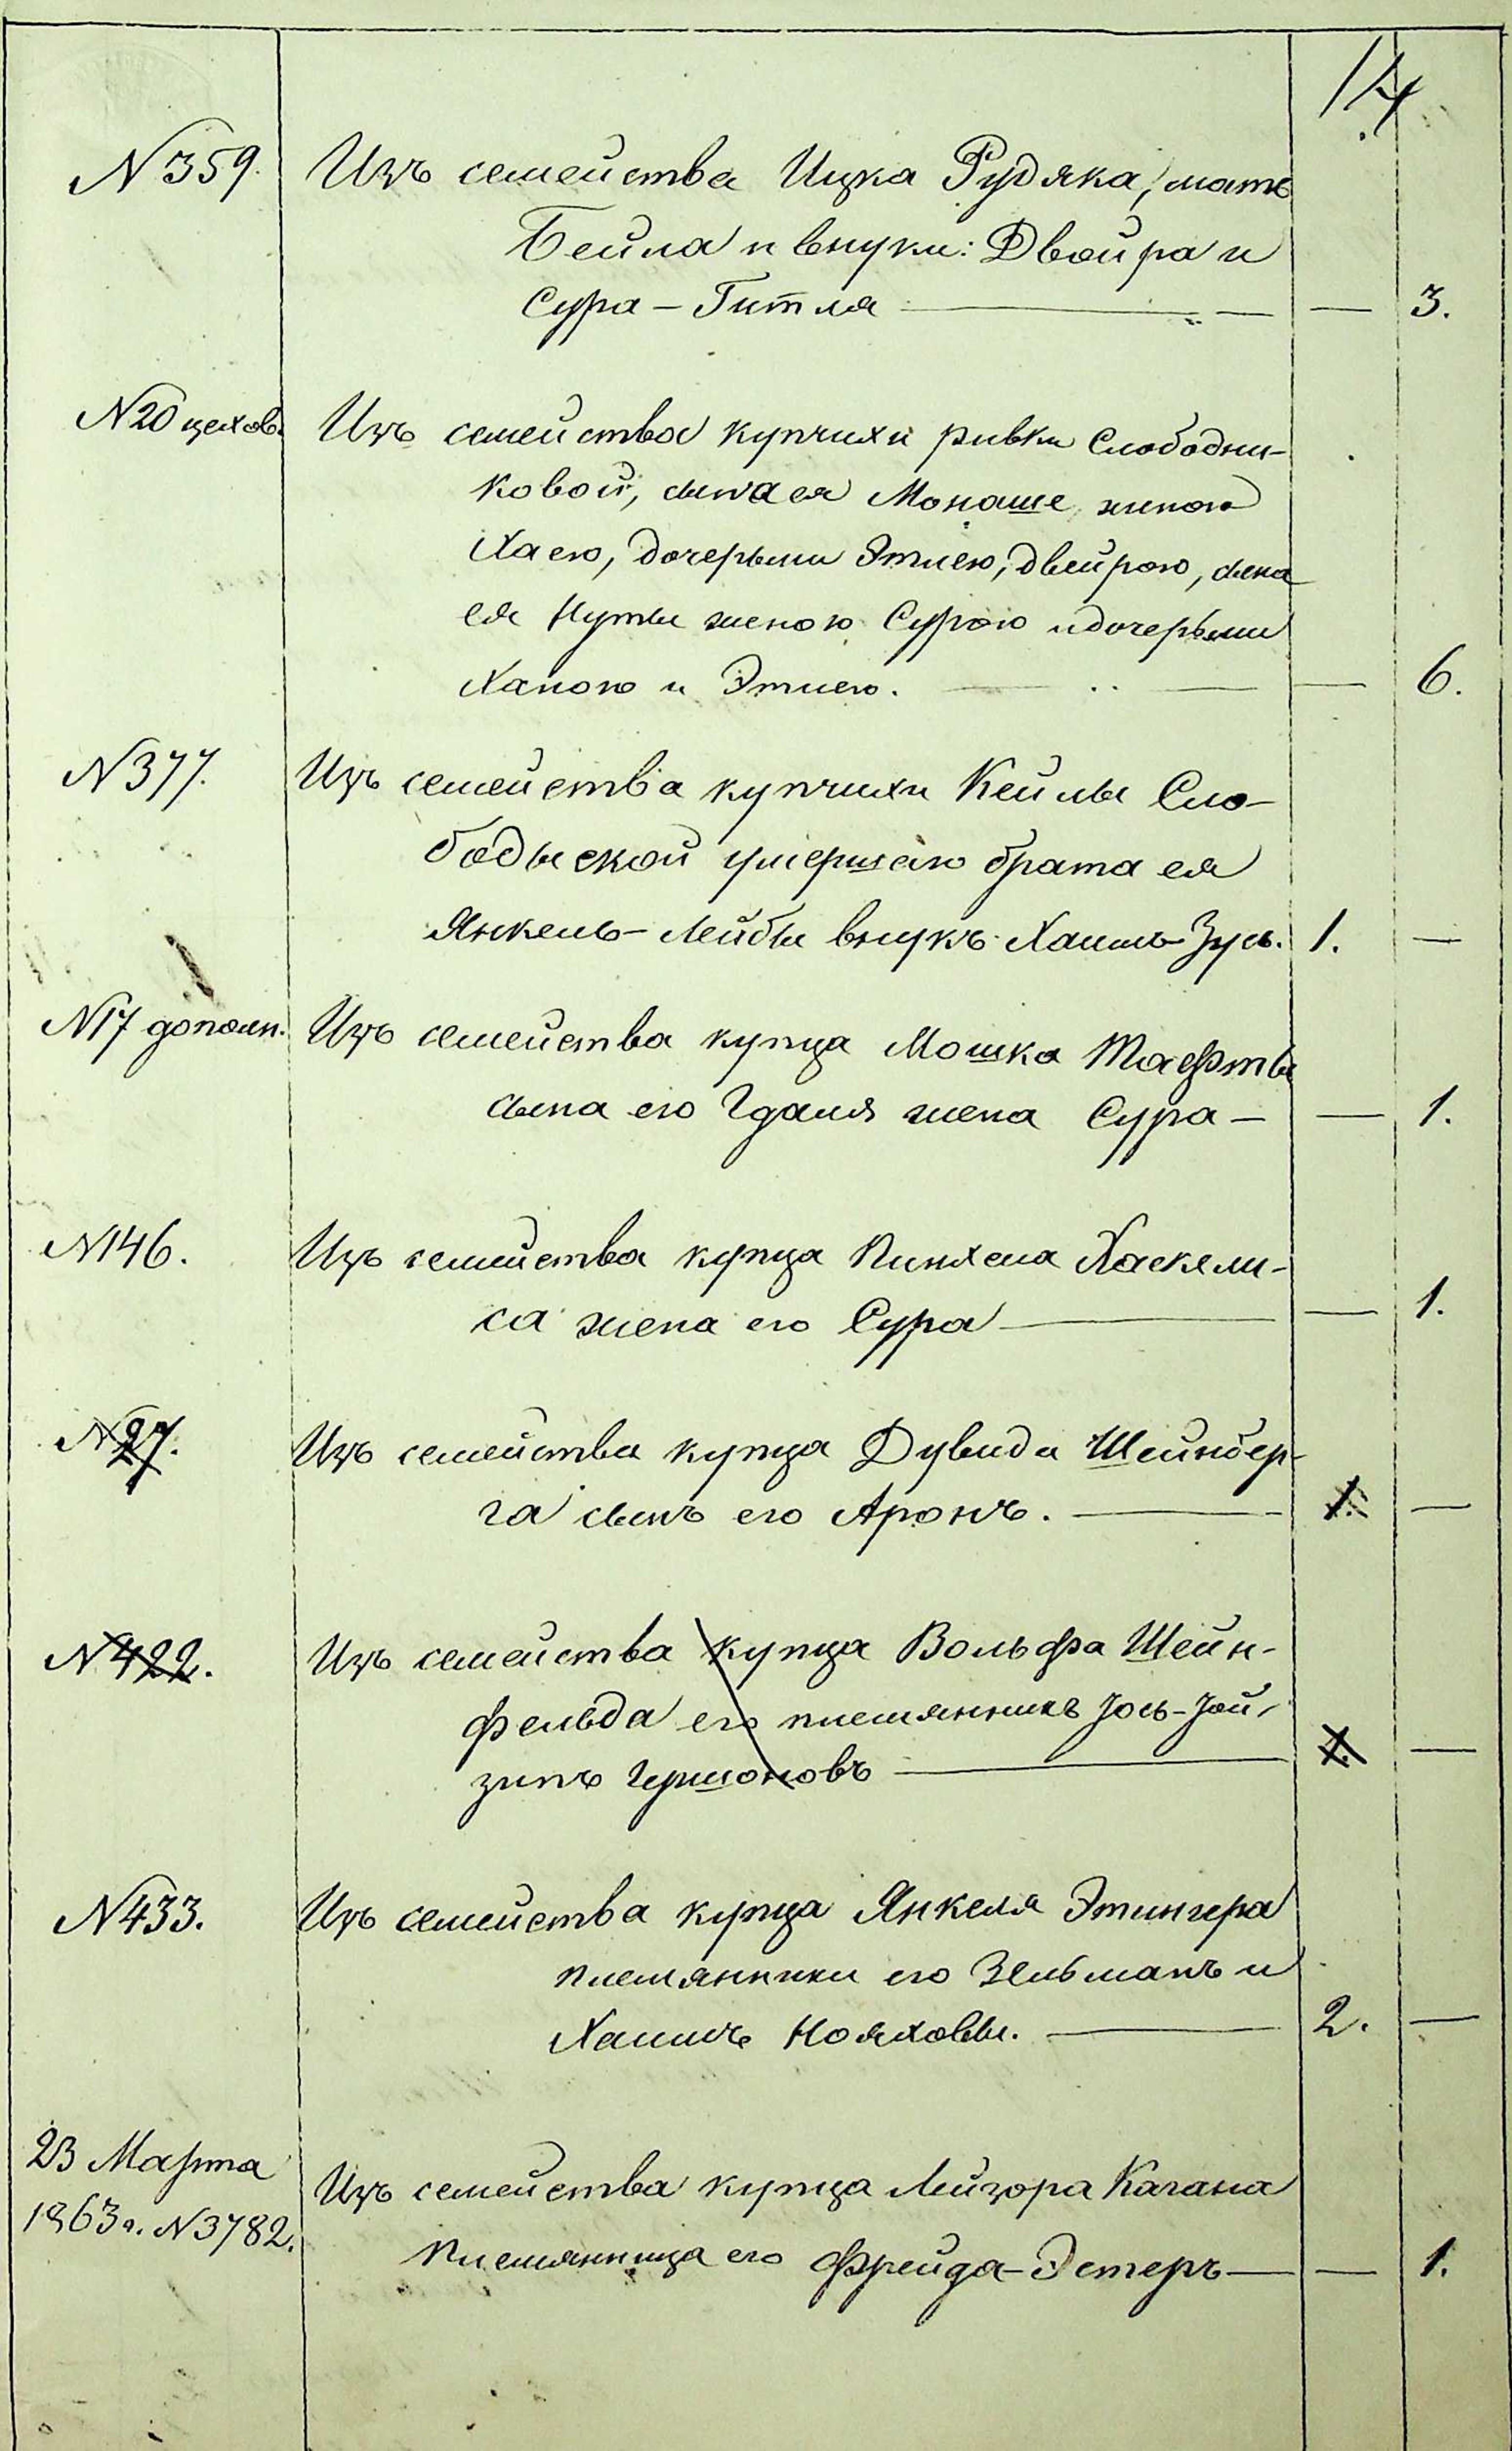 14
N 359. Изъ семейства Ицка Рудяка, мать
Бейла и внуки: Двойра и
Сура – Гитля — — — 3.
N 20 цехов. Изъ семейства купчихи Ривки Слободни-
ковой, сына ея Монаше, женою
Хаею, дочерьми Этлею, Двейрою, сына
ея Нуты женою Сурою и дочерьми
Ханою и Этлею. — — — 6.
N 377. Изъ семейства купчихи Кейлы Сло-
бодыской умершаго брата ея
Янкель – Лейбы внукъ Хаимъ-Зусь. 1. —
N 17 дополн. Изъ семейства купца Мошка Тафты
сына его Гдаля жена Сура – — 1.
N 146. Изъ семейства купца Пинхеса Хаскели-
са жена его Сура — — 1.
N 27. Изъ семейства купца Дувида Шейнбер-
га сынъ его Аронъ. — 1. —
N 422. Изъ семейства купца Вольфа Шейн-
фельда его племянникъ Іось-Зой-
зипъ Гершоновъ — 1. —
N 433. Изъ семейства купца Янкеля Этингера
племянники его Зельманъ и
Хаимъ Нояховы. — 2. —
23 Марта Изъ семейства купца Лейзора Кагана
1863 г. N 3782. племянница его Фрейда-Эстеръ — — 1.